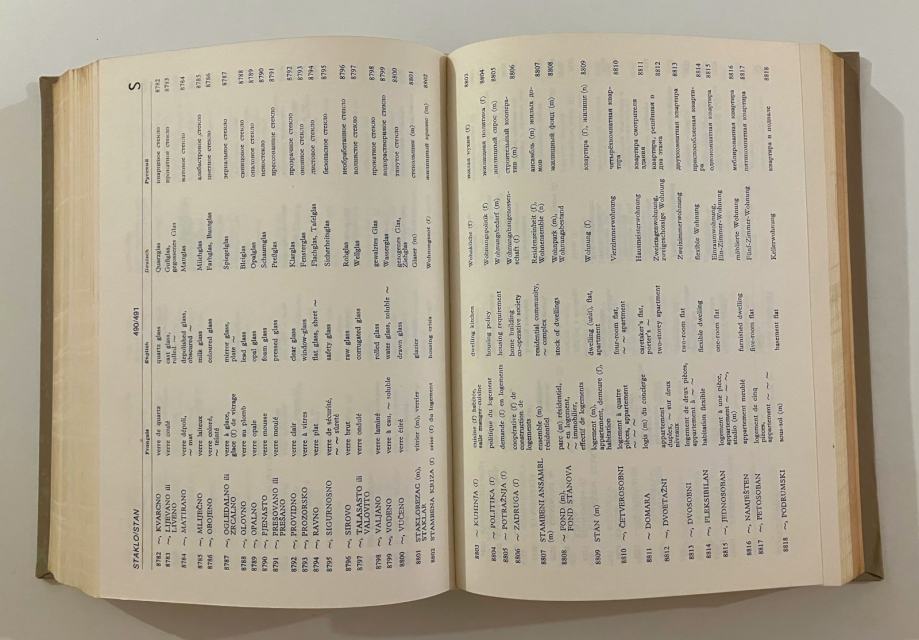 STAKLO/STAN 490/491 S
Français English Deutsch Русский
8782 ~, KVARCNO verre de quartz quartz glass Quarzglas кварцевое стекло 8782
8783 ~, LIJEVANO ili verre coulé cast glass, Gußglas, прокатное стекло 8783
LIVENO rolled ~ gegossenes Glas
8784 ~, MATIRANO verre dépoli, depolished glass, Mattglas матовое стекло 8784
~ mat obscured ~
8785 ~, MLIJEČNO verre laiteux milk glass Milchglas 8785
8786 ~, OBOJENO verre coloré, coloured glass Farbglas, Buntglas цветное стекло 8786
~ teinté
8787 ~, OGLEDALNO ili verre à glace, mirror glass, Spiegelglas зеркальное стекло 8787
ZRCALNO glace (f) de vitrage plate ~
8788 ~, OLOVNO verre au plomb lead glass Bleiglas свинцовое стекло 8788
8789 ~, OPALNO verre opale opal glass Opalglas опаловое стекло 8789
8790 ~, PJENASTO verre mousse foam glass Schaumglas пеностекло 8790
8791 ~, PREŠOVANO ili verre moulé pressed glass Preßglas прессованное стекло 8791
PREŠANO
8792 ~, PROVIDNO verre clair clear glass Klarglas прозрачное стекло 8792
8793 ~, PROZORSKO verre à vitres window-glass Fensterglas оконное стекло 8793
8794 ~, RAVNO verre plat flat glass, sheet ~ Flachglas, Tafelglas листовое стекло 8794
8795 ~, SIGURNOSNO verre de sécurité, safety glass Sicherheitsglas безопасное стекло 8795
~ de sûreté
8796 ~, SIROVO verre brut raw glass Rohglas необработанное стекло 8796
8797 ~, TALASASTO ili verre ondulé corrugated glass Wellglas волнистое стекло 8797
VALOVITO
8798 ~, VALJANO verre laminé rolled glass gewalztes Glas прокатное стекло 8798
8799 ~, VODENO verre à eau, ~ soluble water glass, soluble ~ Wasserglas водорастворимое стекло 8799
8800 ~, VUČENO verre étiré drawn glass gezogenes Glas, тянутое стекло 8800
Ziehglas
8801 STAKLOREZAC (m), vitrier (m), verrier glazier Glaser (m) стекольщик (m) 8801
STAKLAR
8802 STAMBENA KRIZA (f) crise (f) du logement housing crisis Wohnungsnot (f) жилищный кризис (m) 8802
8803 ~ KUHINJA (f) cuisine (f) habitée, dwelling kitchen Wohnküche (f) жилая кухня (f) 8803
salle manger-cuisine
8804 ~ POLITIKA (f) politique du logement housing policy Wohnungspolitik (f) жилищная политика (f) 8804
8805 ~ POTRAŽNJA (f) demande (f) en logements housing requirement Wohnungsbedarf (m) жилищный спрос (m) 8805
8806 ~ ZADRUGA (f) coopérative (f) de home building Wohnungsbaugenossen- строительный коопера- 8806
construction de co-operative society schaft (f) тив (m)
logements
8807 STAMBENI ANSAMBL ensemble (m) residential community, Residenzeinheit (f), ансамбль (m) жилых до- 8807
(m) résidentiel ~ complex Wohnensemble (n) мов
8808 ~ FOND (m), parc (m) résidentiel, stock of dwellings Wohnpark (m), жилищный фонд (m) 8808
FOND STANOVA ~ en logement, Wohnungbestand
~ immobilier,
effectif de logements
8809 STAN (m) logement (m), dwelling (unit), flat, Wohnung (f) квартира (f), жилище (n) 8809
appartement, demeure (f), apartment
habitation
8810 ~, ČETVEROSOBNI logement à quatre four-room flat, Vierzimmerwohnung четырёхкомнатная квар- 8810
pièces, appartement ~ ~ apartment тира
~ ~ ~
8811 ~ DOMARA logis (m) du concierge caretaker's flat, Hausmeisterwohnung квартира смотрителя 8811
porter's ~ здания
8812 ~, DVOETAŽNI appartement two-storey apartment Zweietagenwohnung, квартира, решённая в 8812
duplex, ~ sur deux zweigeschossige Wohnung два этажа
niveaux
8813 ~, DVOSOBNI logement de deux pièces, two-room flat Zweizimmerwohnung двухкомнатная квартира 8813
appartement à ~ ~
8814 ~, FLEKSIBILAN habitation flexible flexible dwelling flexible Wohnung 8814
8815 ~, JEDNOSOBAN logement à une pièce, one-room flat Einraumwohnung, однокомнатная квартира 8815
appartement ~ ~, Ein-Zimmer-Wohnung
studio (m)
8816 ~, NAMJEŠTEN appartement meublé furnished dwelling möblierte Wohnung меблированная квартира 8816
8817 ~, PETOSOBAN logement de cinq five-room flat Fünf-Zimmer-Wohnung пятикомнатная квартира 8817
pièces,
appartement ~ ~
8818 ~, PODRUMSKI sous-sol (m) basement flat Kellerwohnung квартира в подвале 8818